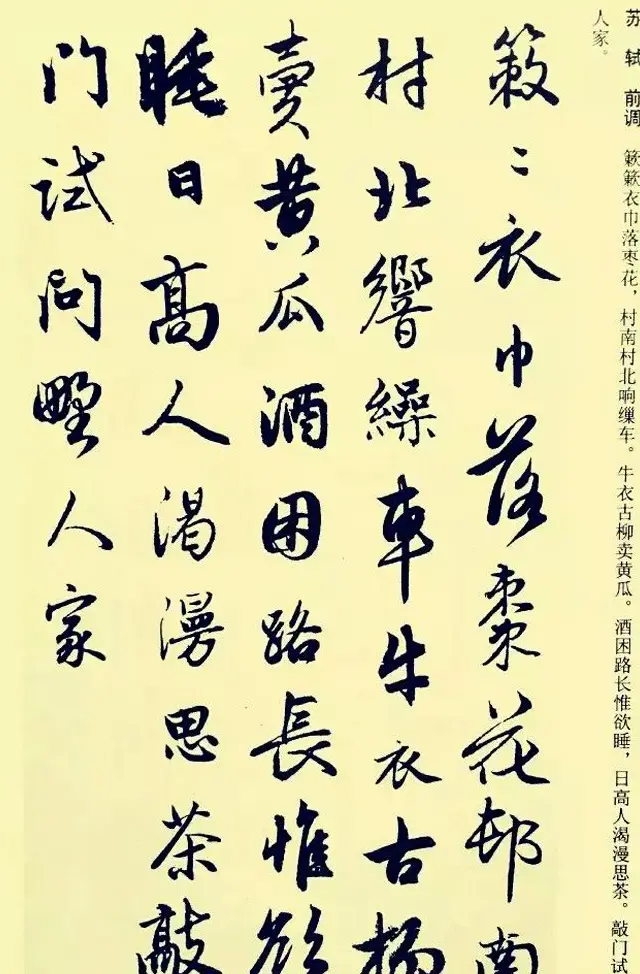 苏轼 前调 簌簌衣巾落枣花，村南村北响缫车。牛衣古柳卖黄瓜。酒困路长惟欲睡，日高人渴漫思茶。敲门试
人家。
簌〻衣巾落棗花邨南
村北響繰車牛衣古
賣黄瓜酒困路長惟欲
睡日高人渴漫思茶敲
門試問野人家